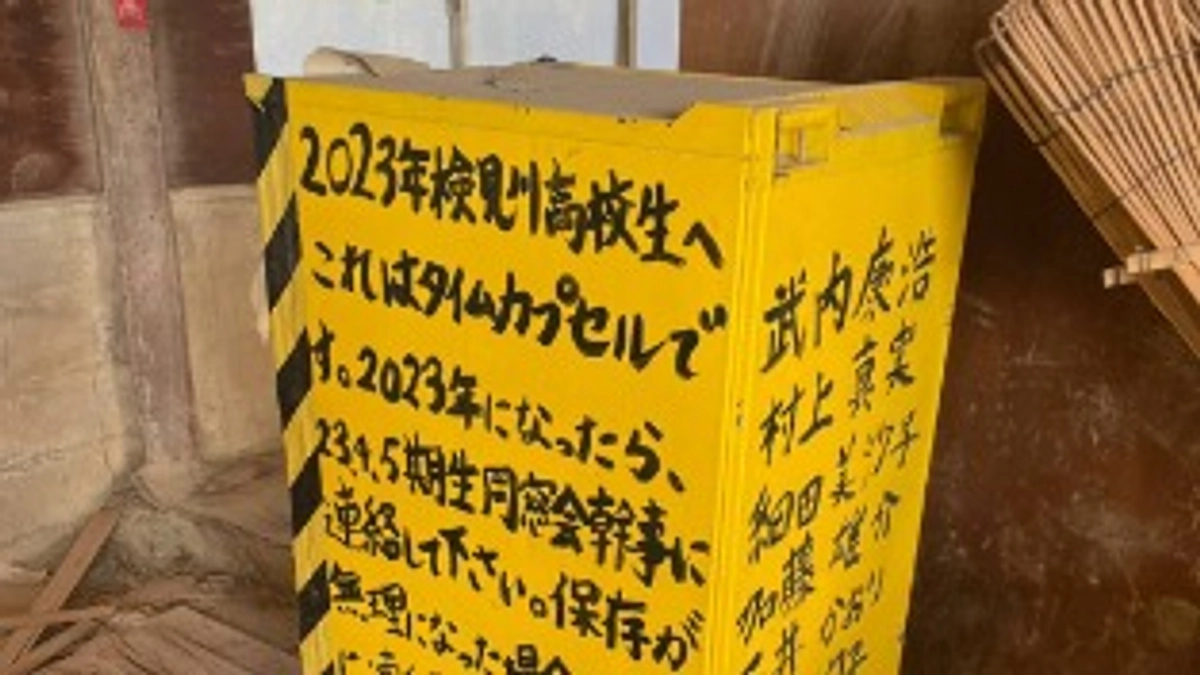 2023年検見川高校生へ
これはタイムカプセルで
す。2023年になったら、
23.4.5期生同窓会幹事に
連絡して下さい。保存が
無理になった場合
武内康浩
村上真実
細田美沙子
加藤雄介
井かおり